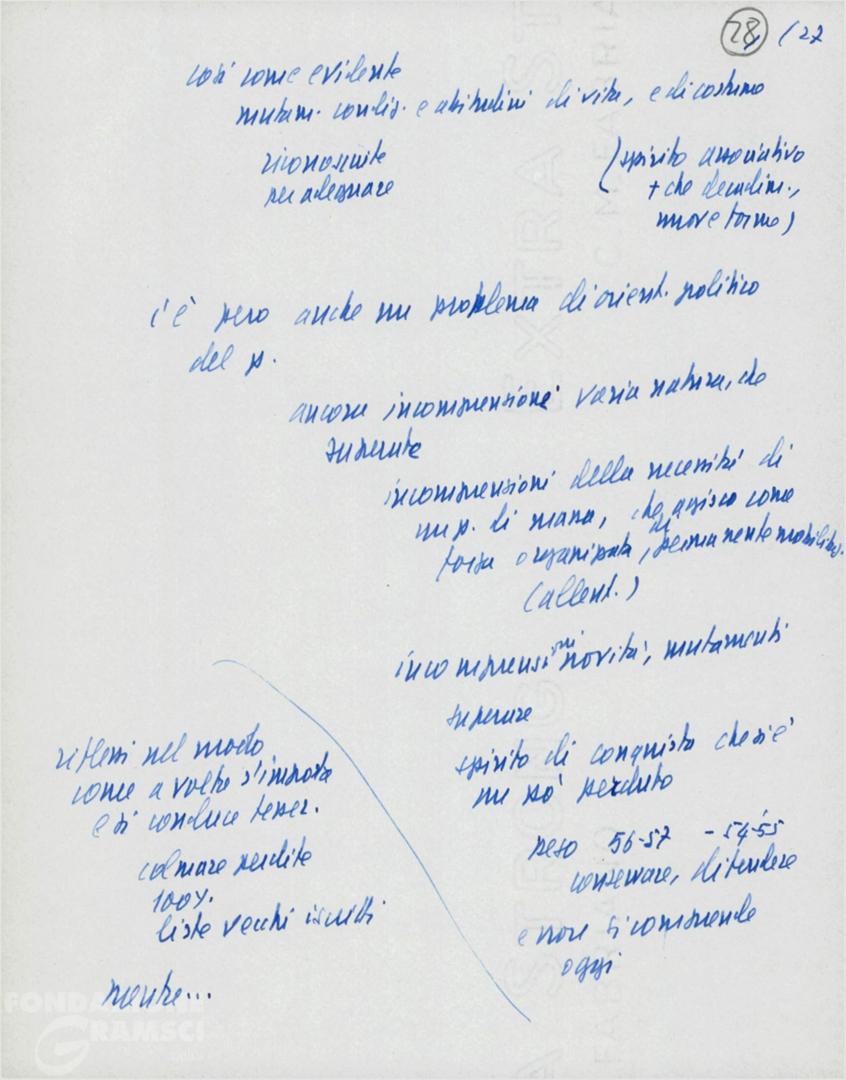 28 / 27
così come evidente
mutam. condiz. e abitudini di vita, e di costume
riconosciute
per adeguare
(spirito associativo
+ che declin.,
nuove forme)
c'è pero anche un problema di orient. politico
del p.
ancora incomprensione varia natura, che
superate
incomprensioni della necessità di
un p. di massa, che agisca come
forza organizzata, permanentemente mobilit.
(allent.)
incomprensioni novità, mutamenti
superare
spirito di conquista che si è
un pò perduto
peso 56-57 - 54-55
conservare, difendere
e non si comprende
oggi
riflessi nel modo
come a volte s'imposta
e si conduce tesser.
colmare perdite
100%.
liste vecchi iscritti
mentre...
FONDAZIONE
GRAMSCI
EXTRA STRONG